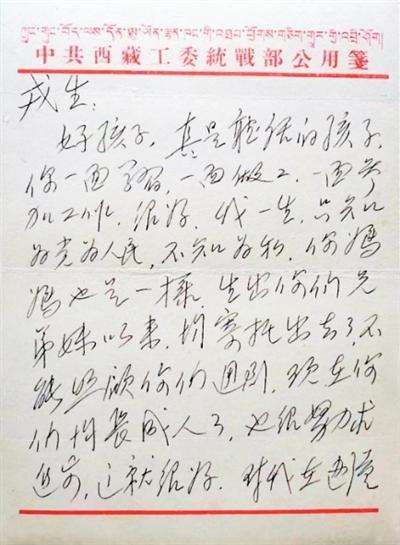 中共西藏工委統戰部公用箋
戎生：
好孩子，真是聽话的孩子，
你一面学習，一面做工，一面参
加工作，很好。我一生，只知以
为党为人民，不知以为私，你媽
媽也是一樣，生出你们兄
弟妹以来，均寄托出去了，不
能照顾你们週到，现在你
们均長成人了，也很努力求
進步，这就很好。